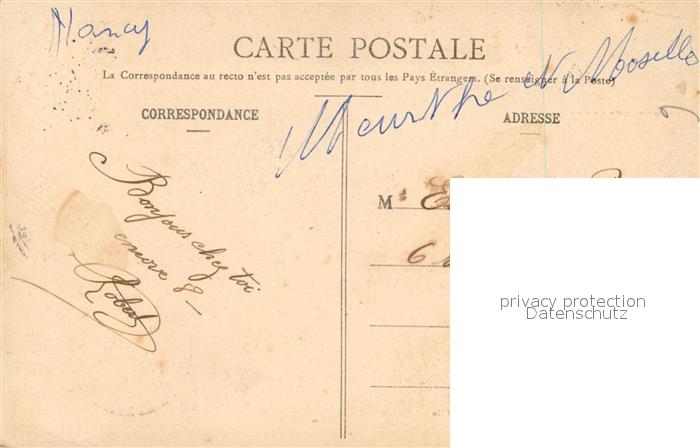 Nancy
CARTE POSTALE
La Correspondance au recto n'est pas acceptée par tous les Pays Étrangers. (Se renseigner à la Poste)
Meurthe et Moselle
CORRESPONDANCE
ADRESSE
Bonjour chez toi
encore 8 —
Robert
M
6
privacy protection
Datenschutz